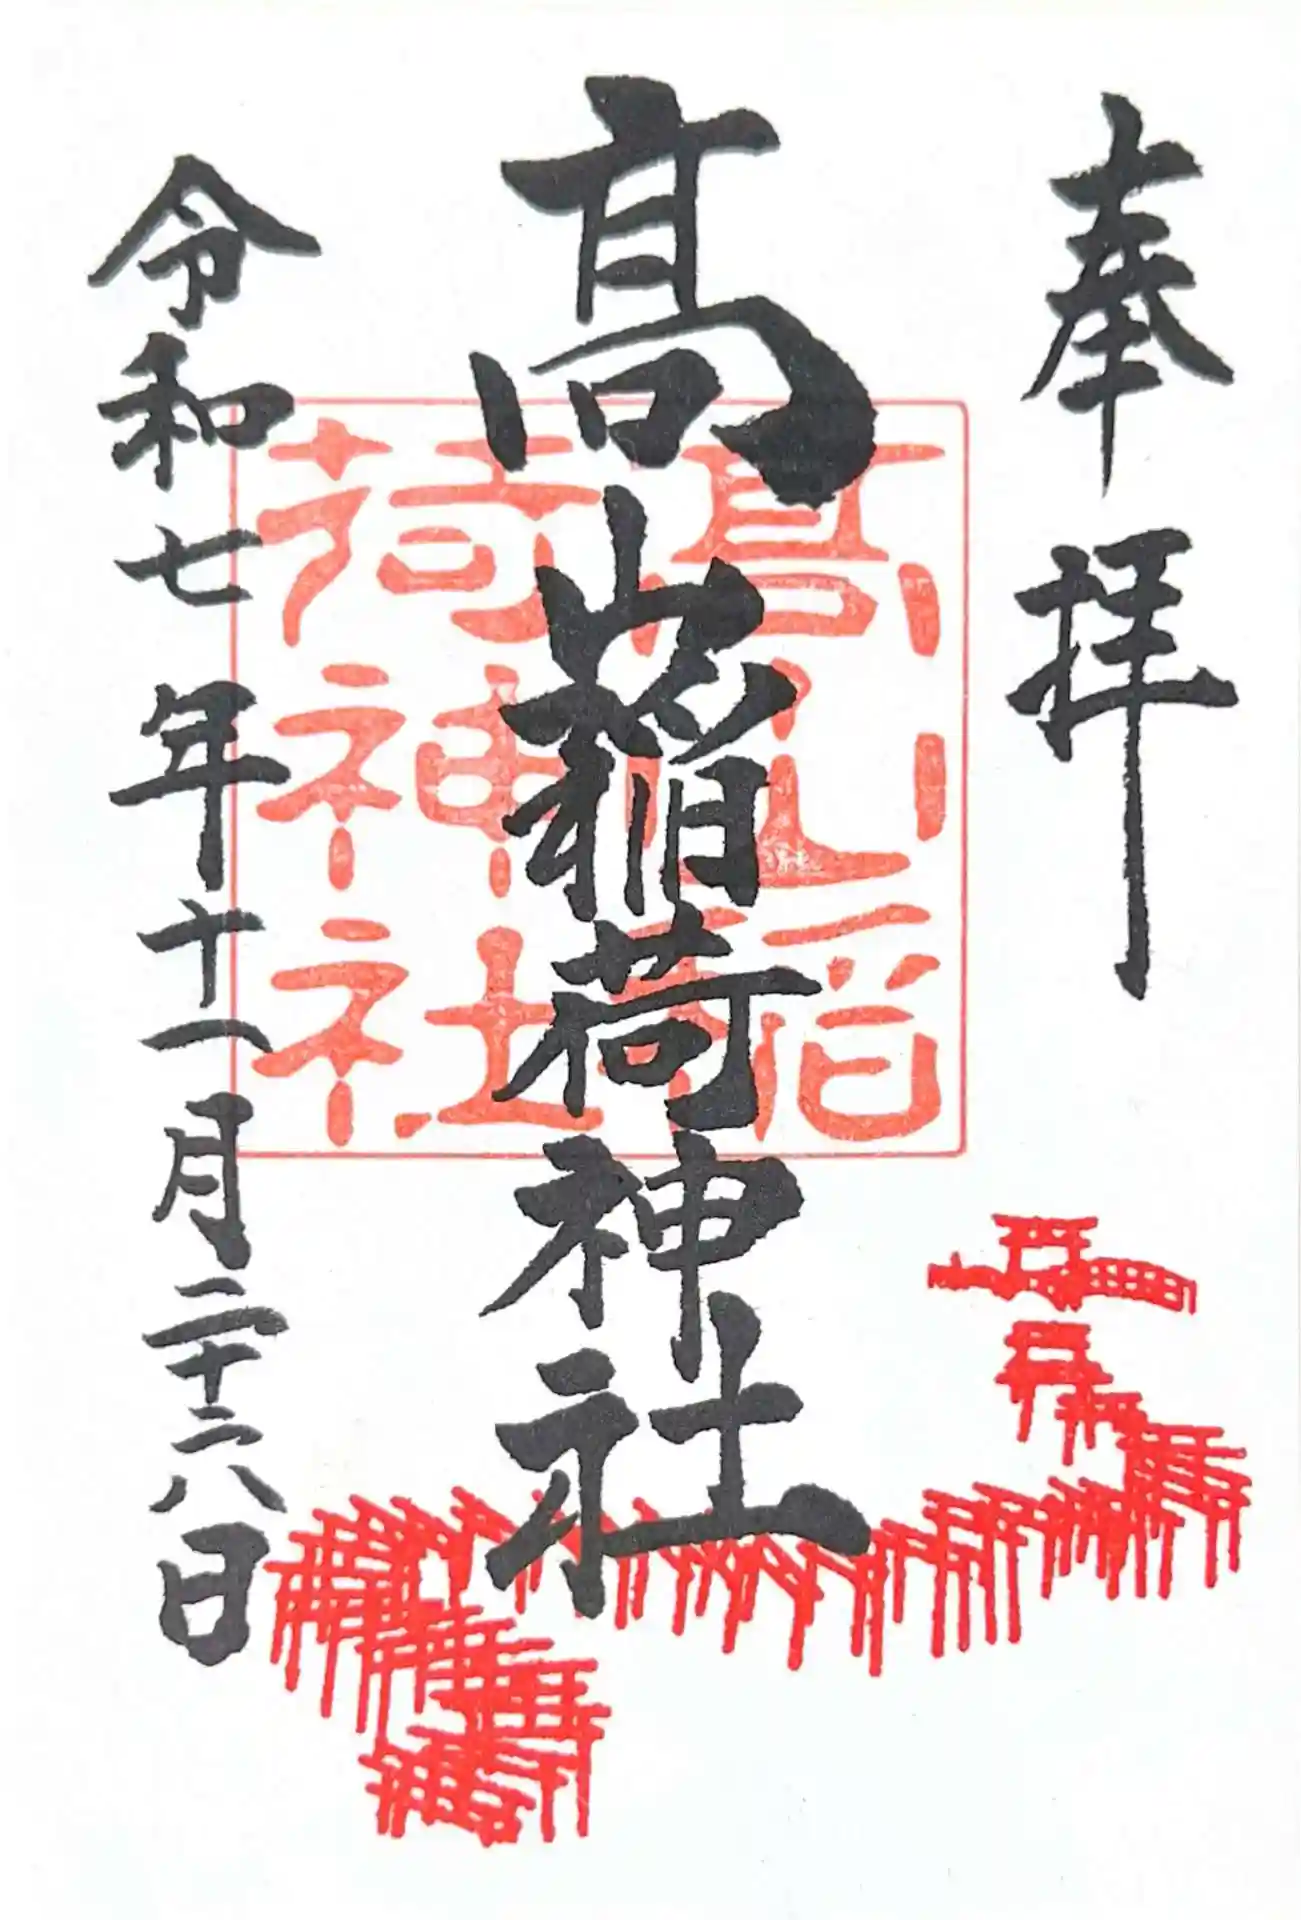 奉拝
髙山稲荷神社
髙山稲
荷神社
令和七年十一月二十六日